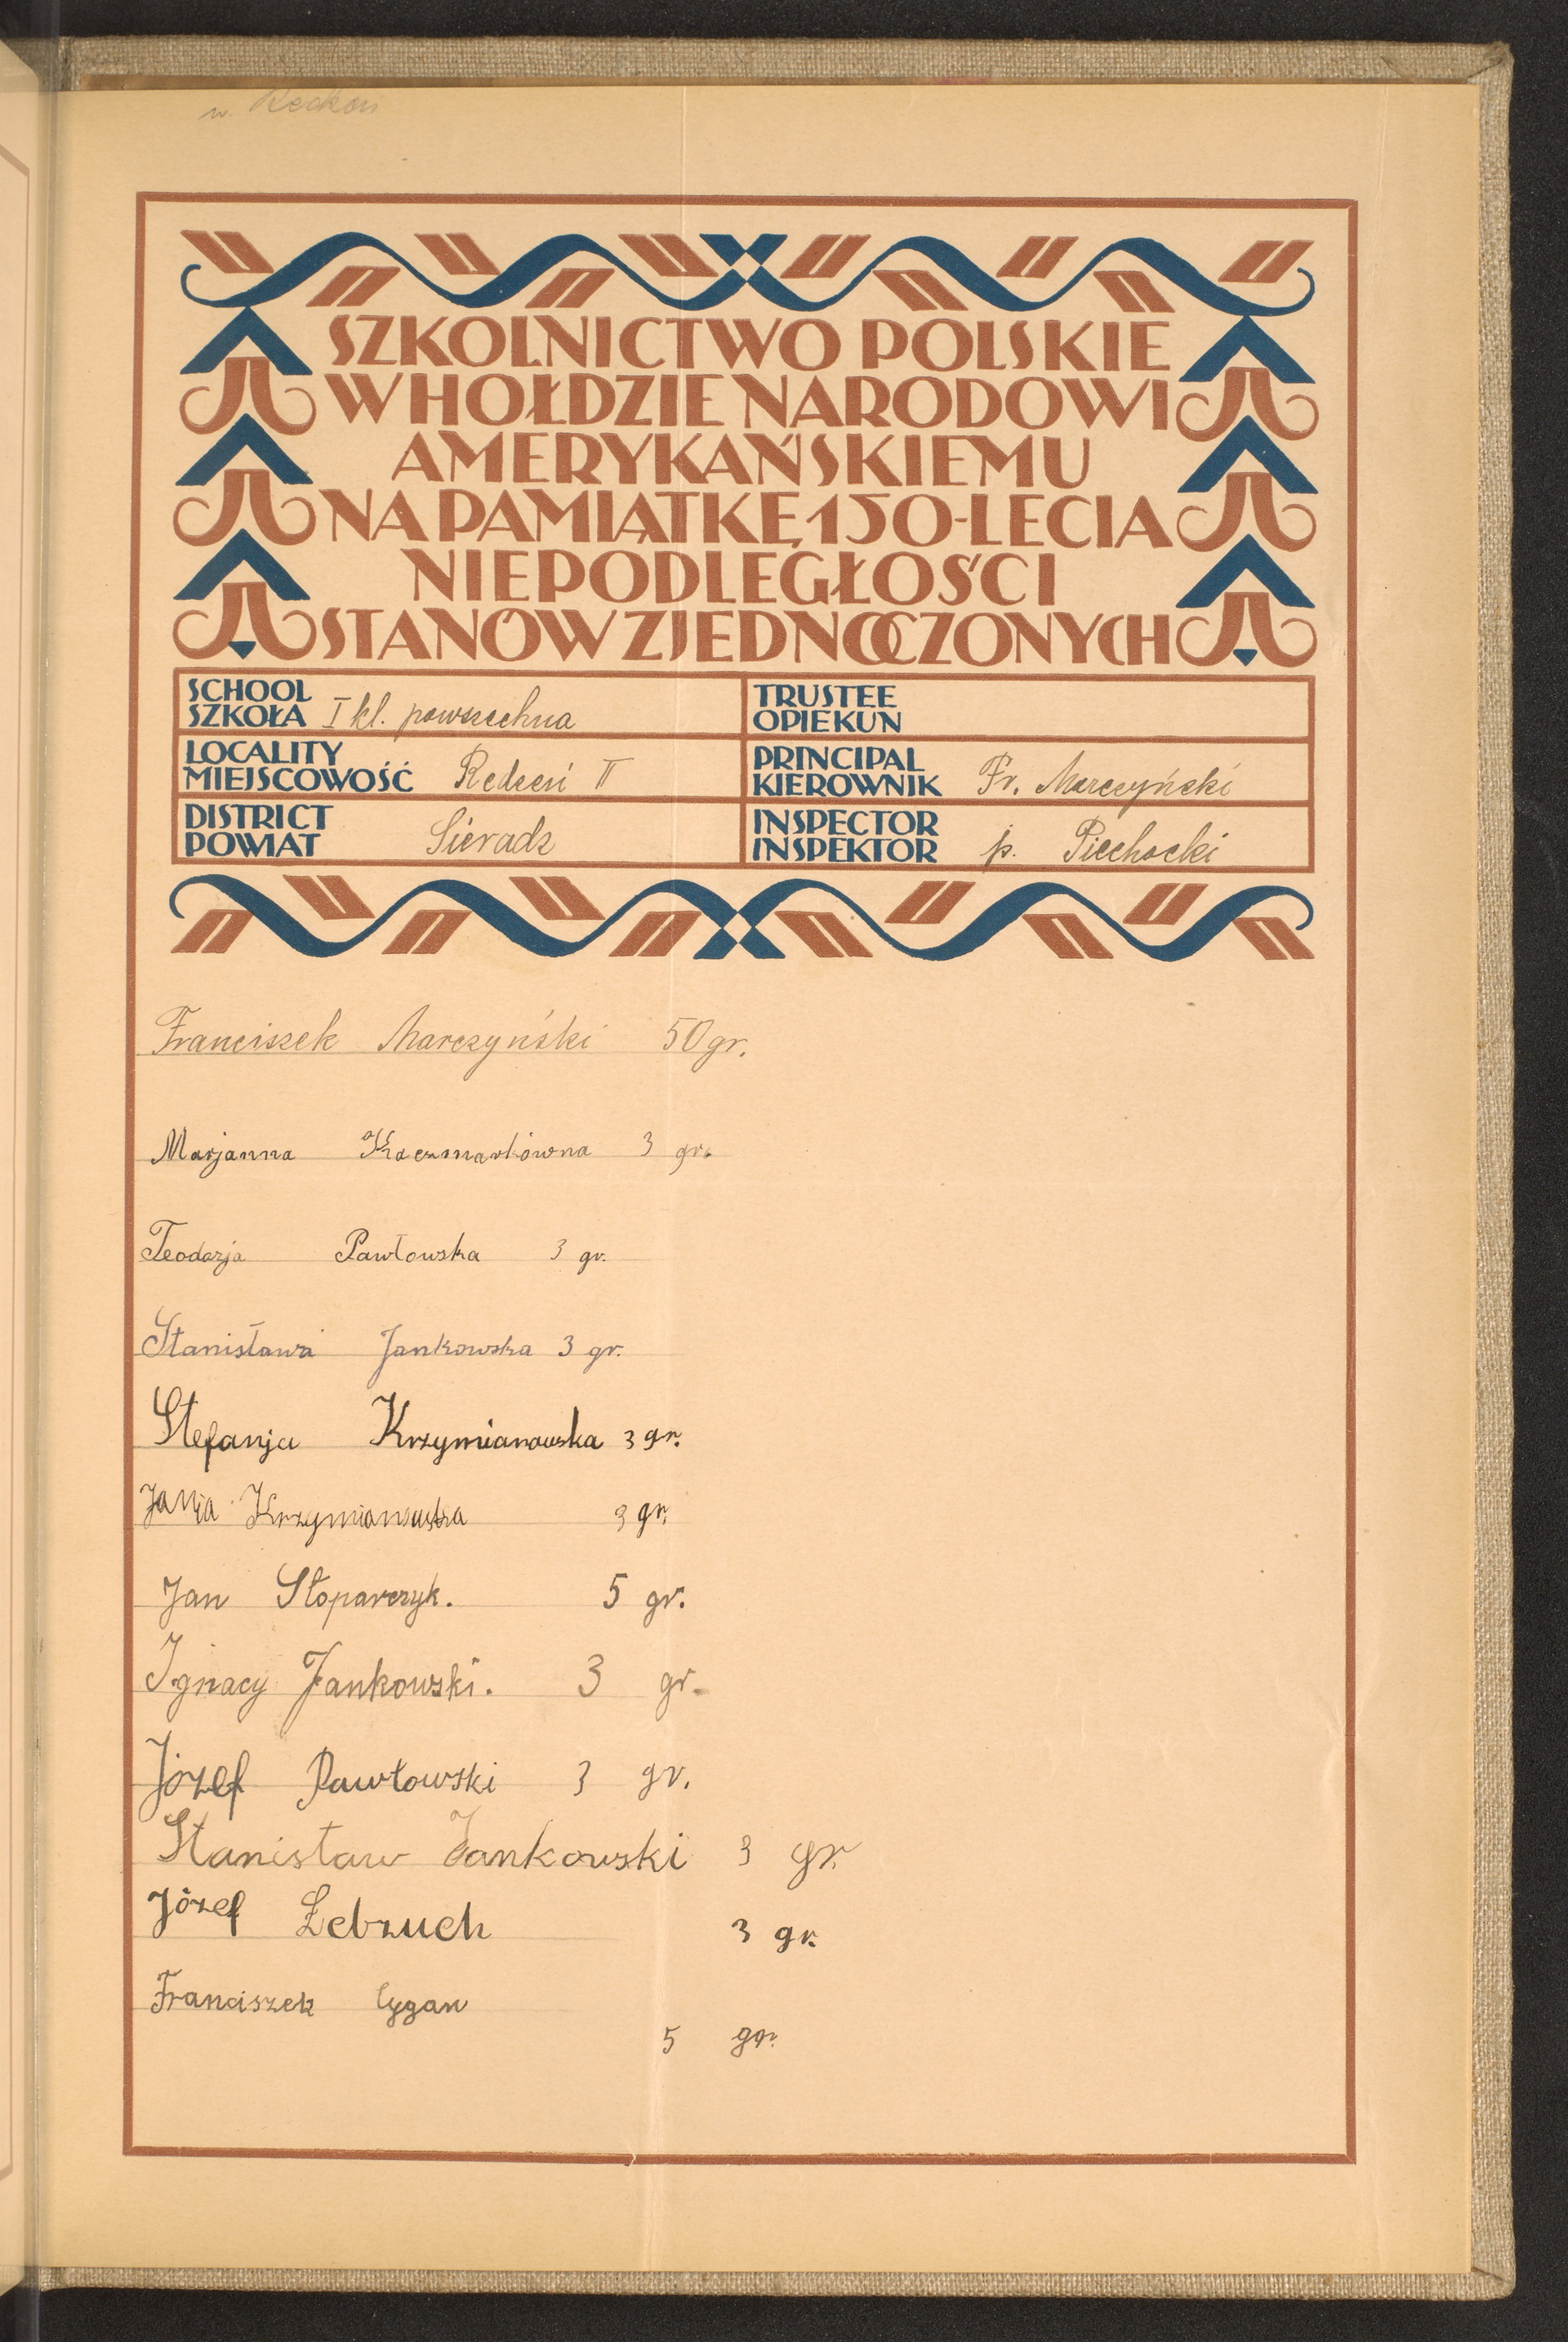 SZKOLNICTWO POLSKIE
W HOŁDZIE NARODOWI
AMERYKAŃSKIEMU
NA PAMIĄTKĘ 150-LECIA
NIEPODLEGŁOŚCI
STANÓW ZJEDNOCZONYCH
SCHOOL
SZKOŁA I kl. powszechna
TRUSTEE
OPIEKUN
LOCALITY
MIEJSCOWOŚĆ Redzeń II
PRINCIPAL
KIEROWNIK Fr. Marczyński
DISTRICT
POWIAT Sieradz
INSPECTOR
INSPEKTOR p. Piechocki
Franciszek Marczyński 50 gr.
Marjanna Kaczmarkówna 3 gr.
Teodozja Pawłowska 3 gr.
Stanisława Jankowska 3 gr.
Stefanja Krzymianowska 3 gr.
Janja Krzymianowska 3 gr.
Jan Stoparczyk. 5 gr.
Ignacy Jankowski. 3 gr.
Józef Pawłowski 3 gr.
Stanisław Jankowski 3 gr.
Józef Łebzuch 3 gr.
Franciszek Cygan
5 gr.